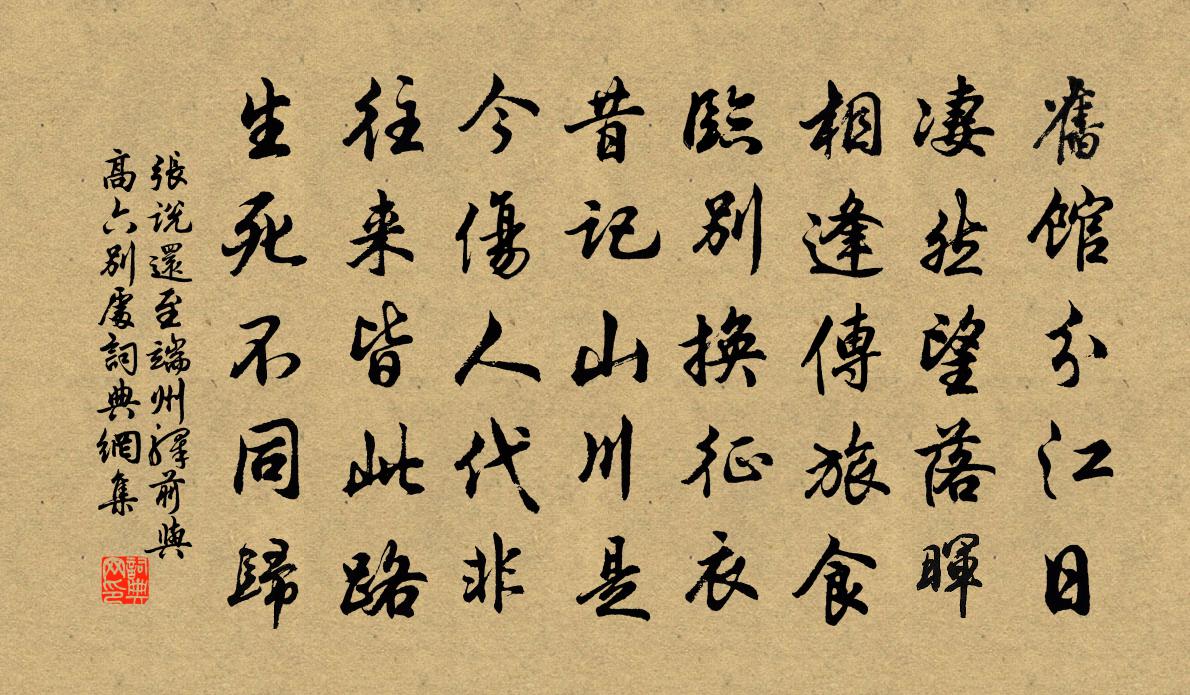 舊館分江日
凄然望落暉
相逢傳旅食
臨別換征衣
昔記山川是
今傷人代非
往来皆此路
生死不同歸
張說還至端州驛前與
高六別處詞典網集
詞典
网印